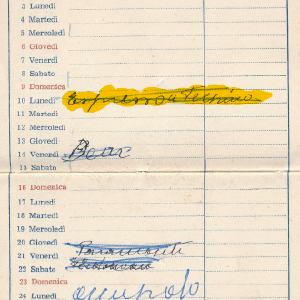 3 Lunedì
4 Martedì
5 Mercoledì
6 Giovedì
7 Venerdì
8 Sabato
9 Domenica
10 Lunedì
11 Martedì
12 Mercoledì
13 Giovedì
14 Venerdì Bear
15 Sabato
16 Domenica
17 Lunedì
18 Martedì
19 Mercoledì
20 Giovedì
21 Venerdì
22 Sabato
23 Domenica
24 Lunedì occupato